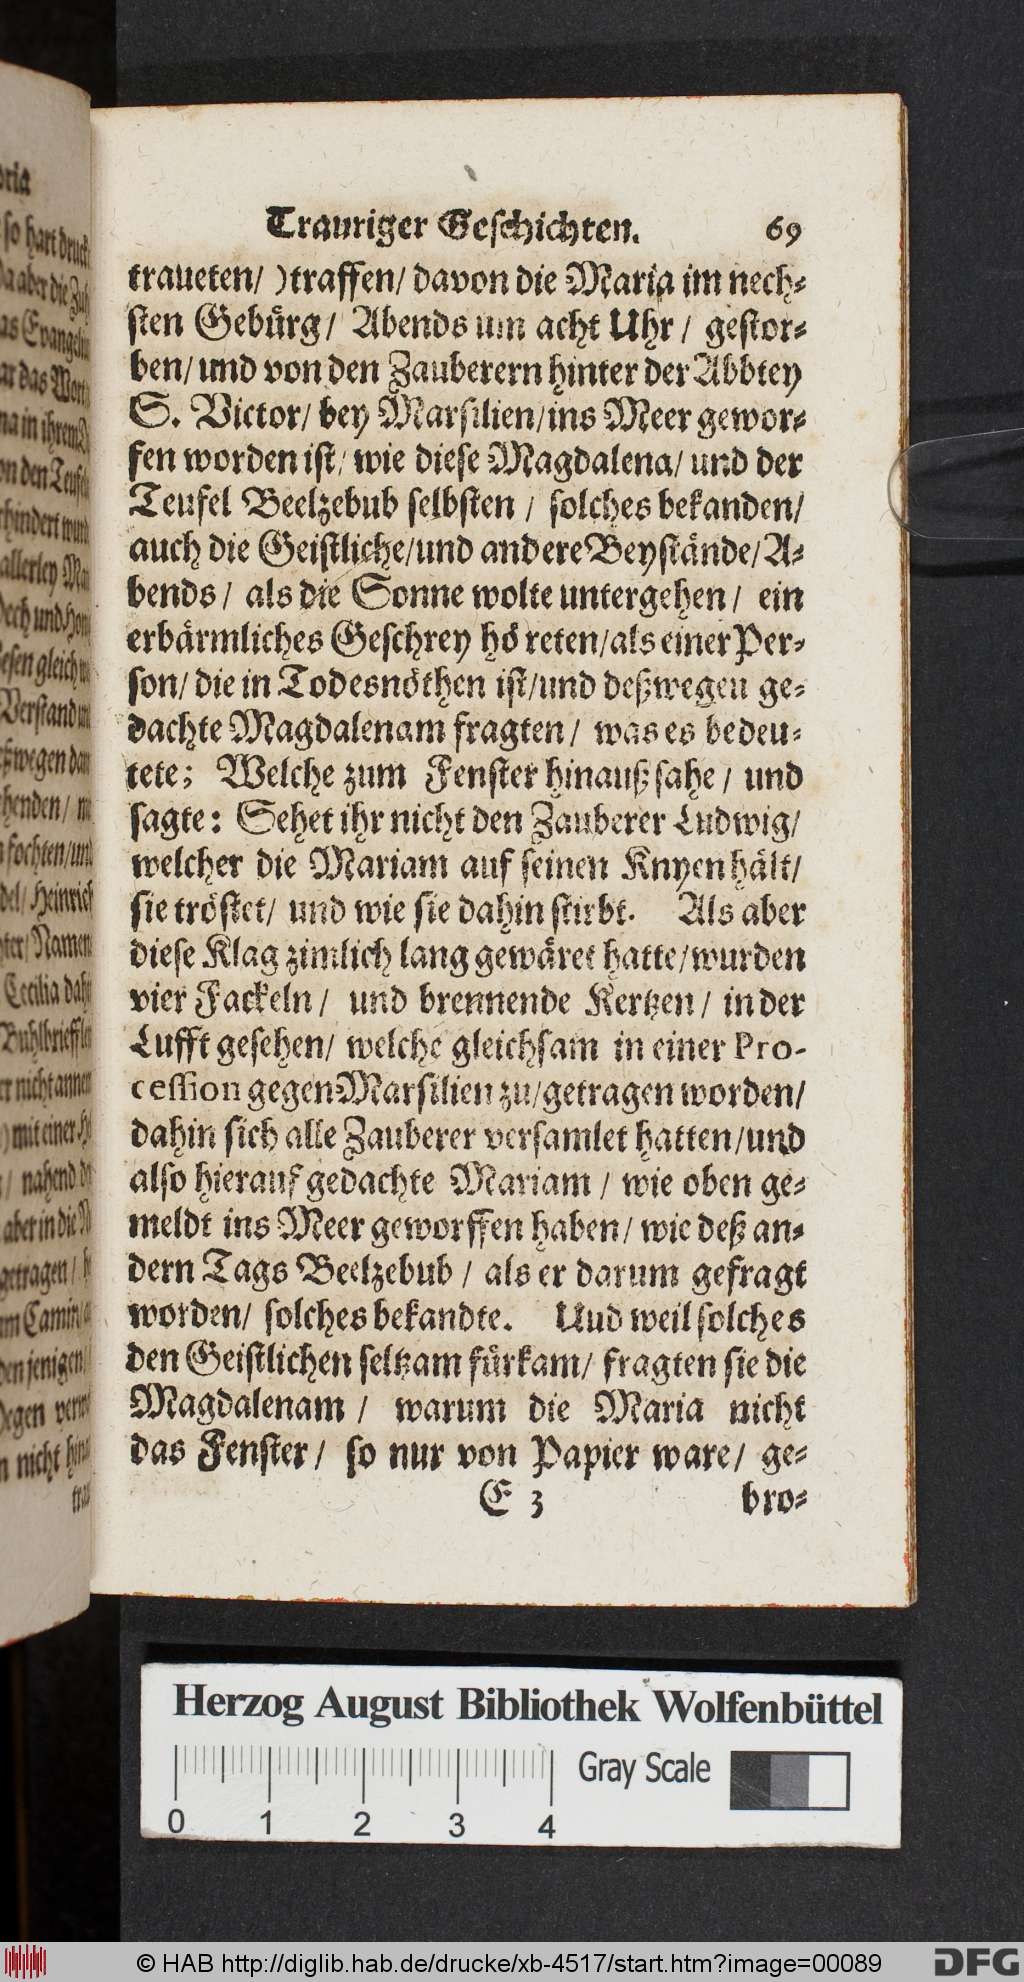 Trauriger Geschichten. 69
traueten/ )traffen/ davon die Maria im nech-
sten Gebürg/ Abends um acht Uhr/ gestor-
ben/ und von den Zauberern hinter der Abbtey
S. Victor/ bey Marsilien/ins Meer gewor-
fen worden ist/ wie diese Magdalena/ und der
Teufel Beelzebub selbsten / solches bekanden/
auch die Geistliche/und andere Beystände/A-
bends / als die Sonne wolte untergehen / ein
erbärmliches Geschrey hö reten/als einer Per-
son/ die in Todesnöthen ist/und deßwegen ge-
dachte Magdalenam fragten / was es bedeu-
tete; Welche zum Fenster hinauß sahe / und
sagte: Sehet ihr nicht den Zauberer Ludwig/
welcher die Mariam auf seinen Knyen hält/
sie tröstet/ und wie sie dahin stirbt. Als aber
diese Klag zimlich lang gewäret hatte/wurden
vier Fackeln / und brennende Kertzen / in der
Lufft gesehen/ welche gleichsam in einer Pro-
cession gegen Marsilien zu/getragen worden/
dahin sich alle Zauberer versamlet hatten/und
also hierauf gedachte Mariam / wie oben ge-
meldt ins Meer geworffen haben/ wie deß an-
dern Tags Beelzebub / als er darum gefragt
worden/ solches bekandte. Uud weil solches
den Geistlichen seltzam fürkam/ fragten sie die
Magdalenam / warum die Maria nicht
das Fenster/ so nur von Papier ware/ ge-
E 3 bro-
Herzog August Bibliothek Wolfenbüttel
Gray Scale
0 1 2 3 4
© HAB http://diglib.hab.de/drucke/xb-4517/start.htm?image=00089
DFG